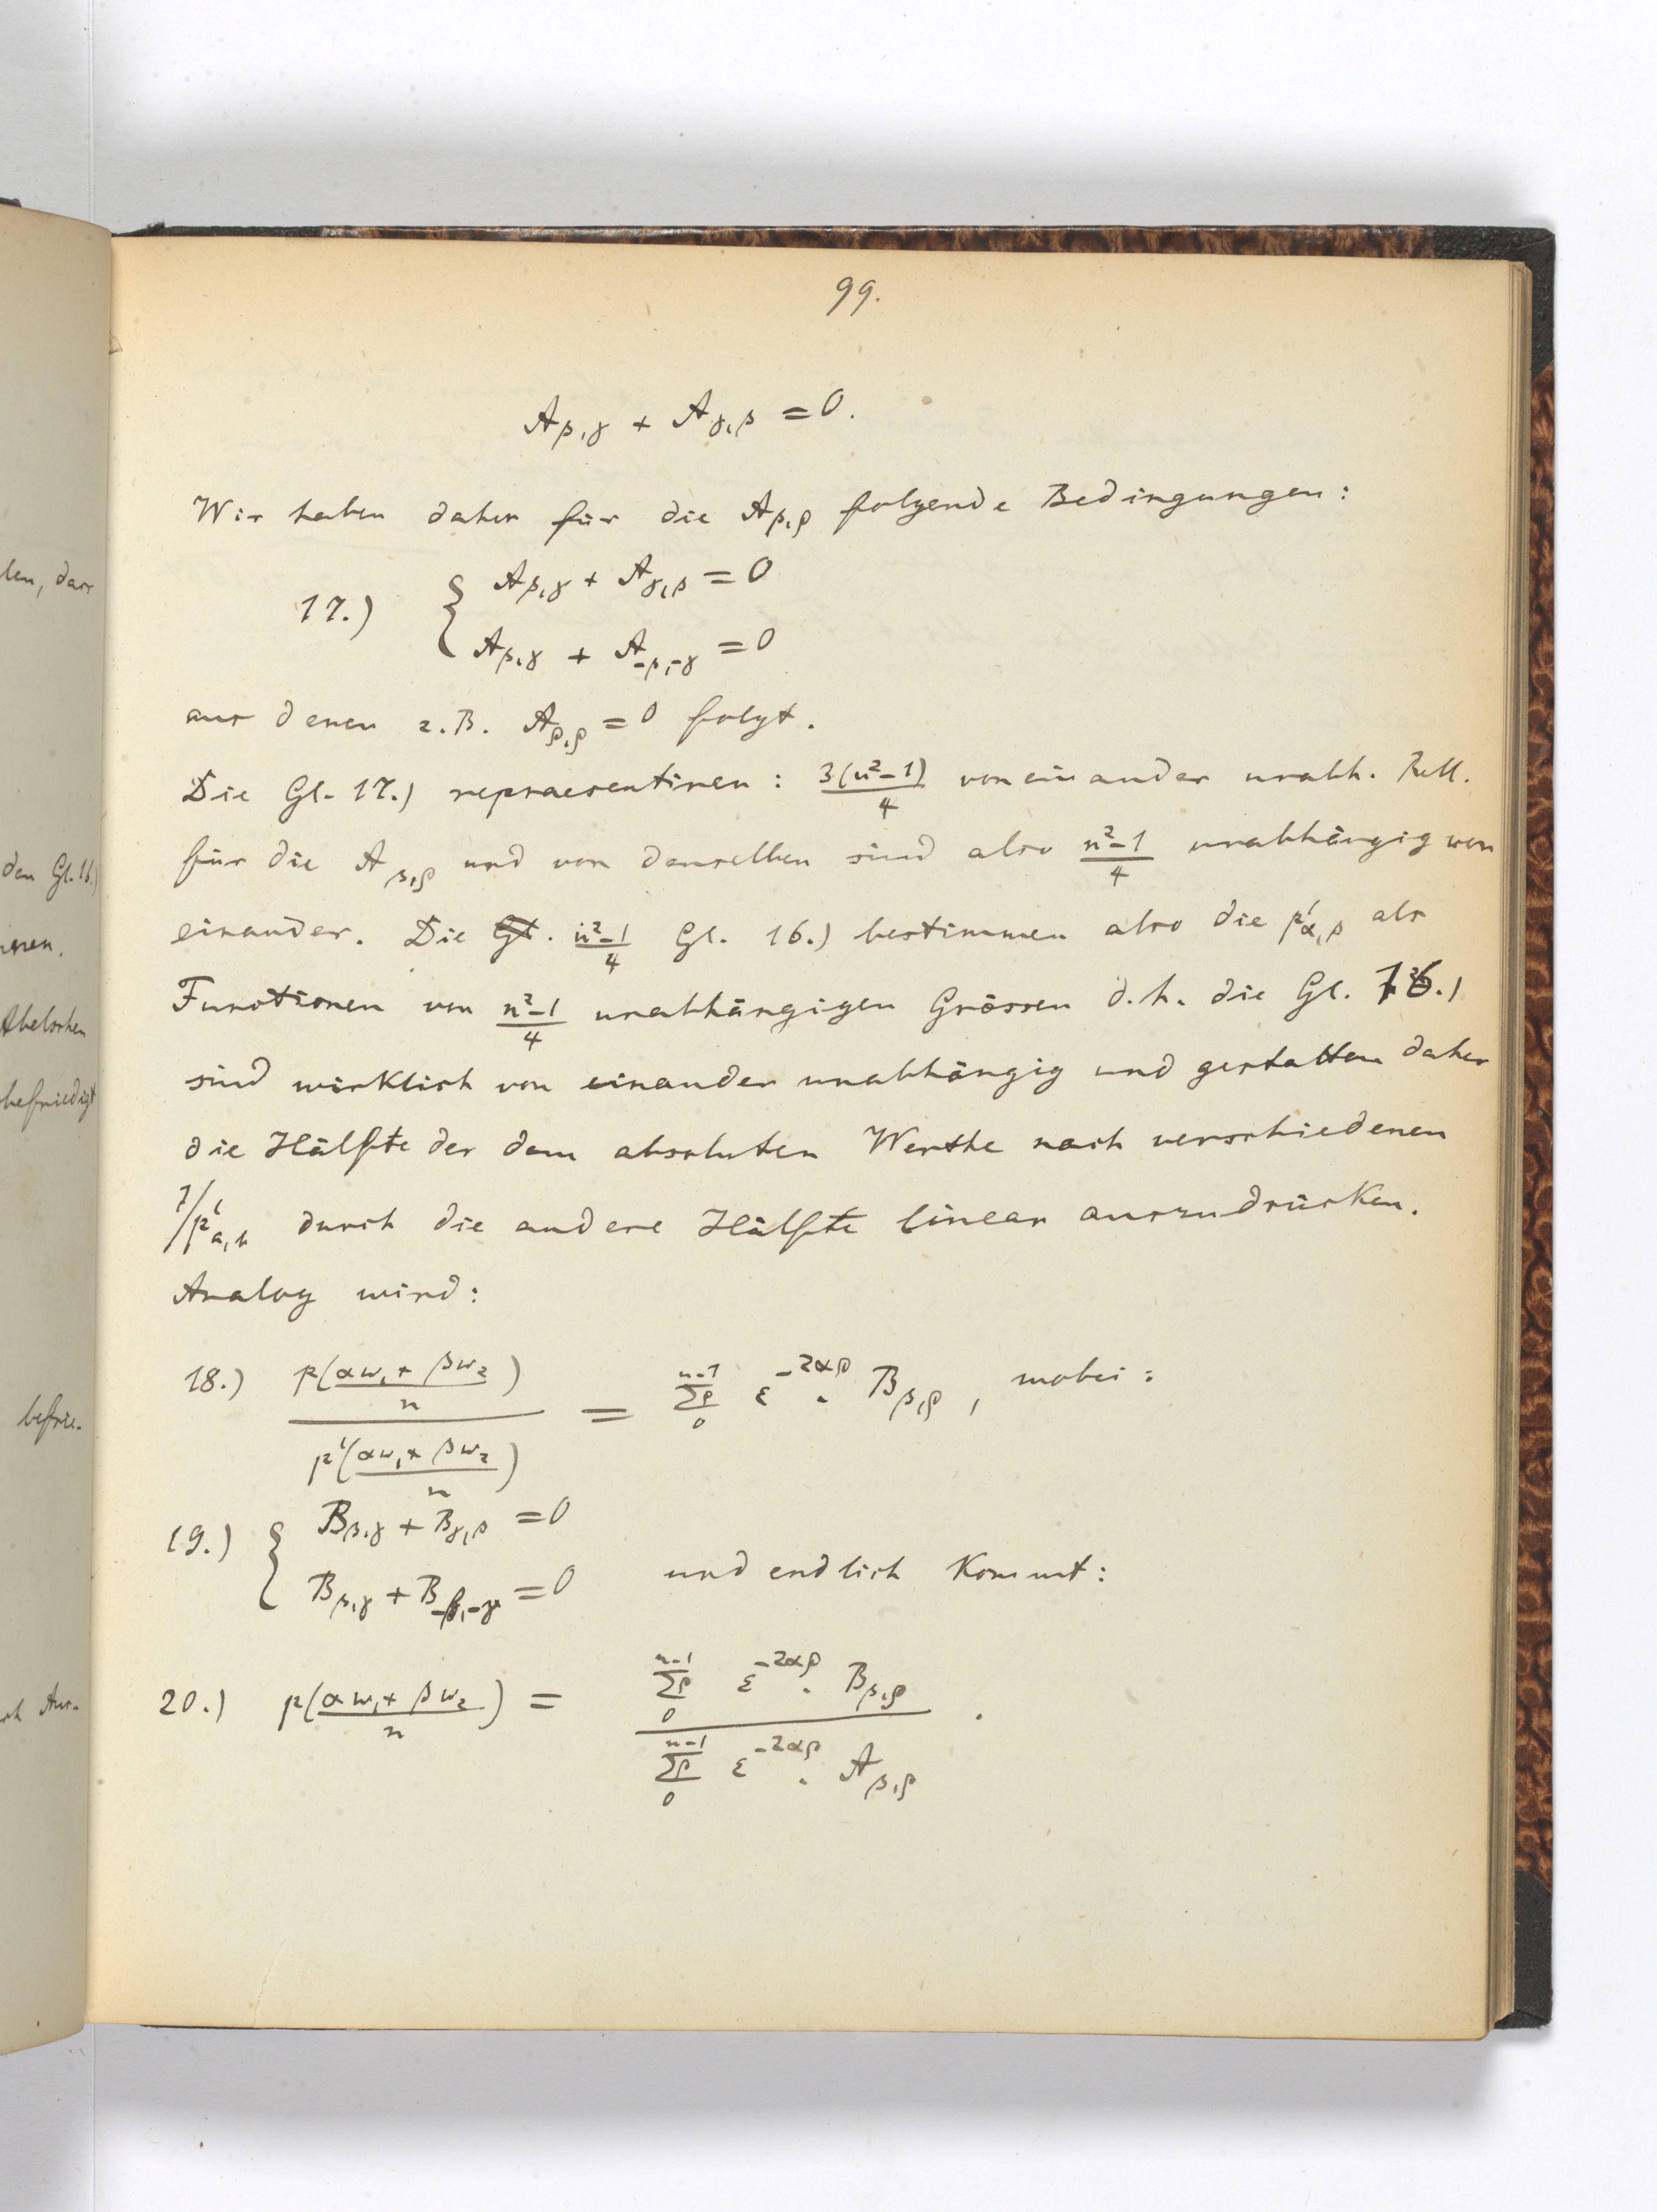 99.
A_{β,γ} + A_{γ,β} = 0.
Wir haben daher für die A_{β,ρ} folgende Bedingungen:
17.) { A_{β,γ} + A_{γ,β} = 0
A_{β,γ} + A_{-β,-γ} = 0
aus denen z.B. A_{ρ,ρ} = 0 folgt.
Die Gl. 17.) repraesentiren: 3(n²-1)/4 von einander unabh. Rell.
für die A_{β,ρ} und von denselben sind also n²-1/4 unabhängig von
einander. Die Gl. n²-1/4 Gl. 16.) bestimmen also die p'_{α,β} als
Functionen von n²-1/4 unabhängigen Grössen d.h. die Gl. 16.)
sind wirklich von einander unabhängig und gestatten daher
die Hälfte der dem absoluten Werthe nach verschiedenen
1/p'_{a,b} durch die andere Hälfte linear auszudrücken.
Analog wird:
18.) p(αw₁+βw₂/n) / p'(αw₁+βw₂/n) = Σρ_0^{n-1} ε^{-2αρ} . B_{β,ρ}, wobei:
19.) { B_{β,γ} + B_{γ,β} = 0
B_{β,γ} + B_{-β,-γ} = 0 und endlich kommt:
20.) p(αw₁+βw₂/n) = Σρ_0^{n-1} ε^{-2αρ} . B_{β,ρ} / Σρ_0^{n-1} ε^{-2αρ} . A_{β,ρ} .
len, dass
den Gl. 16.)
Abelschen
befriedigt
befrie-